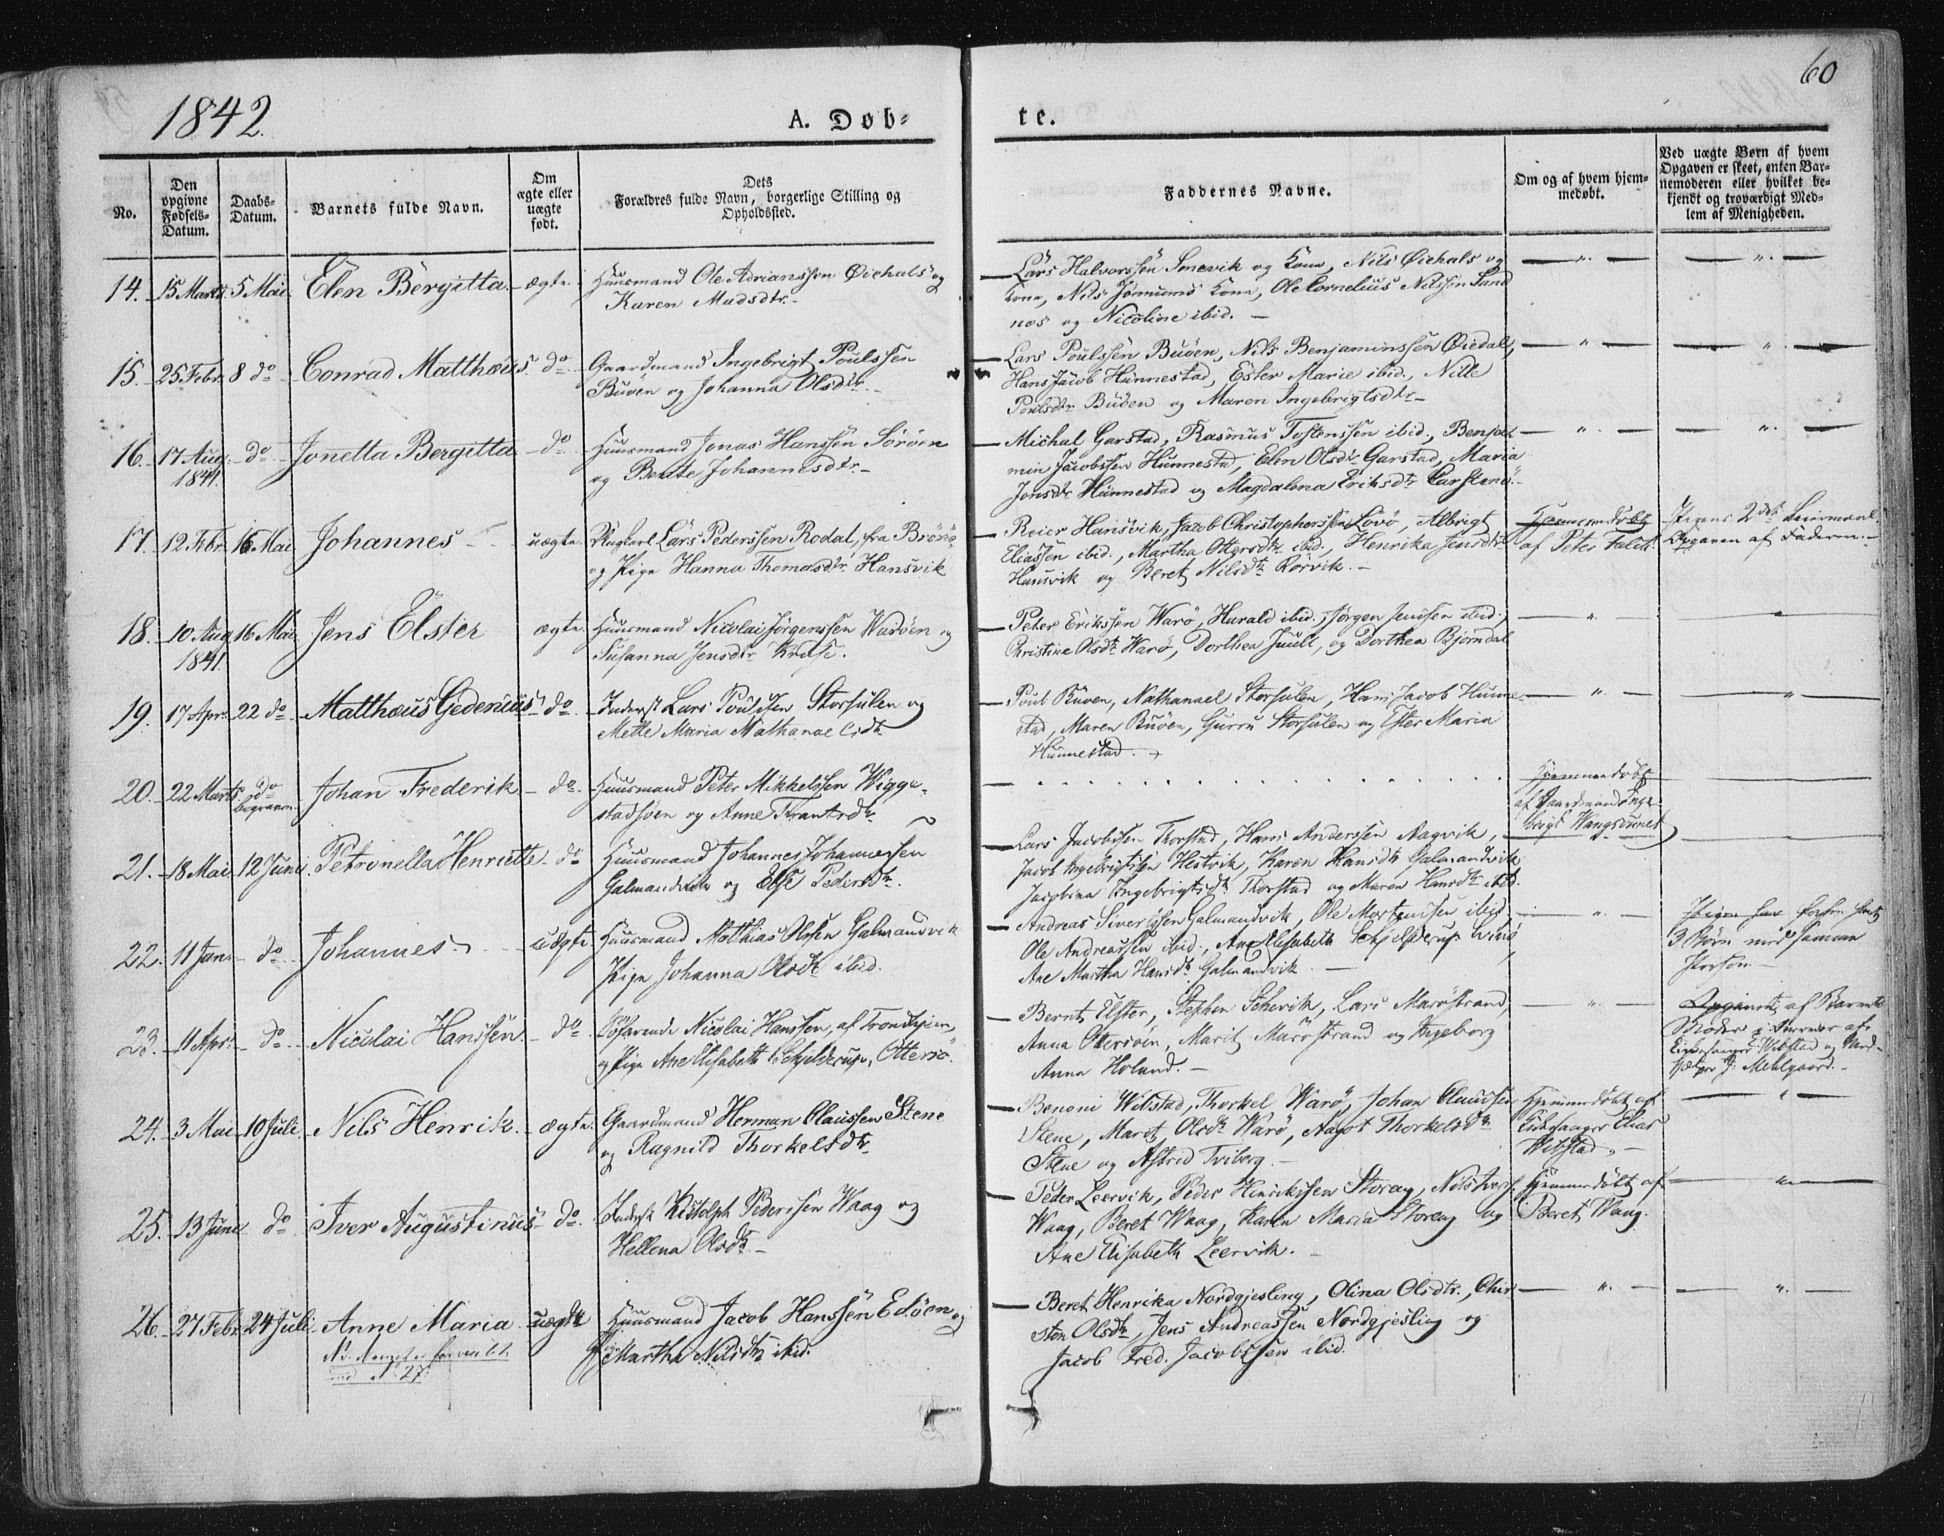 1842.
A. Døb-
te.
60
No.
Den opgivne Fødsels-Datum.
Daabs-Datum.
Barnets fulde Navn.
Om ægte eller uægte født.
Dets Forældres fulde Navn, borgerlige Stilling og Opholdssted.
Faddernes Navne.
Om og af hvem hjem-medøbt.
Ved uægte Børn af hvem Opgaven er skeet, enten Bar-nemoderen eller hvilket be-kjendt og troværdigt Med-lem af Menigheden.
14. 15 Marts 5 Mai. Elen Bergitta. ægte. Huusmand Ole Adrianssen Øiehals og
Karen Madsdtr.
Lars Halvorssen Smevik og Kone, Nils Øiehals og
Kone, Nils Kone, Ole Cornelius Nilssen Sand
nes og Nicoline ibid.
15. 25 Febr. 8 do Conrad Matthæus. do Gaardmand Ingebrigt Poulssen
Buøen og Johanna Olsdtr.
Lars Poulssen Buøen, Nils Benjaminssen Øiedal,
Hans Jacob Hunnestad, Ester Marie ibid., Nille
Poulsdtr Buøen og Maren Ingebrigtsdtr
16. 17 Aug. 1841. do Jonetta Bergitta do Huusmand Jonas Hanssen Sørøen
og Berete Johannesdtr.
Michal Garstad, Rasmus Tostenssen ibid., Benja
min Jacobssen Hunnestad, Elen Olsdtr Garstad, Maria
Jonsdtr Hunnestad og Magdalena Eriksdtr Carstenø.
17. 12 Febr. 16 Mai Johannes uægte. Ungkarl Lars Pederssen Rodal, fra Brønø
og Pige Hanna Thomasdtr Hansvik
Reier Hansvik, Jacob Christopherssen Lovø, Albrigt
Eliassen ibid., Martha Ottersdtr ibid., Henrika Jensdtr
Hansvik og Beret Nilsdtr Rørvik.
Hjemmedøbt
af Peter Falch.
Pigens 2det Leiermaal
Opgaven af Faderen.
18. 10 Aug 1841. 16 Mai Jens Elster ægte. Huusmand Nicolai Jørgenssen Warøen og
Susanna Jensdtr Kruse.
Peter Erikssen Warø, Harald ibid., Jørgen Jenssen ibid,
Christine Olsdtr Warø, Dorthea Juul, og Dorthea Bjørndal
19. 17 Apr. 22 do Matthæus Gedenius do Inderst Lars Poulssen Storsulen og
Mette Maria Nathanaelsdtr
Poul Buøen, Nathanael Storsulen, Hans Jacob Hunne
stad, Maren Buøen, Gurru Storsulen og Ester Maria
Hunnestad.
20. 22 Marts. do Begraven. Johan Frederik do Huusmand Peter Mikkelssen Wigge
stadsøen og Anne Frantzdtr
Hjemmedøbt
af Gaardmand Inge-
brigt Wangsvunet
21. 18 Mai 12 Juni Petronella Henriette. do Huusmand Johannes Johannessen
Galmandvik og Else Pedersdtr.
Lars Jacobssen Thorstad, Hans Anderssen Aagvik,
Jacob Ingebrigtssen Hestvik, Karen Hansdtr Galmandvik
Jacobina Ingebrigtsdtr Thorstad og Maren Hansdtr ibid.
22. 11 Jan. do Johannes uægte. Huusmand Matthias Olssen Galmandvik
Pige Johanna Olsdtr ibid.
Andreas Sivertssen Galmandvik, Ole Mortenssen ibid
Ole Andreassen ibid., Ane Elisabeth Schjelderup
Ane Martha Hansdtr Galmandvik
Pigen har forhen havt
3 Børn med samme
Person.
23. 11 Apr. do Nicolai Hanssen do Søfarende Nicolai Hanssen, af Trondhjem,
og Pige Ane Elisabeth Schjelderup, Ottersø.
Bernt Elster, Stephen Schevik, Lars Marøstrand,
Anna Ottersøen, Marit Marøstrand og Ingeborg
Anna Holand.
Opgivet af Barnets
Moder
Kirkesanger Wibstad og Med-
hjelper J. Mehlgaard.
24. 3 Mai 10 Juli Nils Henrik. ægte. Gaardmand Herman Olaussen Stene
og Ragnild Thorkelsdtr.
Benoni Wibstad, Thorkel Warø, Johan Olaussen
Stene, Maret Olsdtr Warø, Aagot Thorkelsdtr
Stene og Astrid Tviberg.
Hjemmedøbt af
Kirkesanger Elias
Wibstad.
25. 13 Juni do Iver Augustinus do. Inderst Kristoph Pederssen Waag og
Hellena Olsdtr
Peder Leervik, Peder Henrikssen Storøy, Nils Iverss.
Waag, Beret Waag, Karen Maria Storøy og
Ane Elisabeth Leervik.
Hjemmedøbt af
Beret Waag.
26. 27 Febr 24 Juli Anne Maria uægte Huusmand Jacob Hanssen Edøen og
Pige Martha Nilsdtr ibid.
Beret Henrika Nordgjesling, Olina Olsdtr., Chir
sten Olsdtr, Jens Andreassen Nordgjesling og
Jacob Fred. Jacobssen ibid.
No. 27.